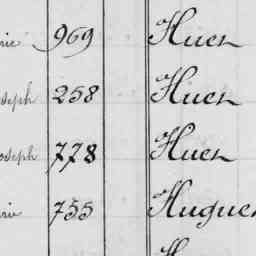 rie 969 Huen
oseph 258 Huen
oseph 778 Huen
rie 755 Hugue